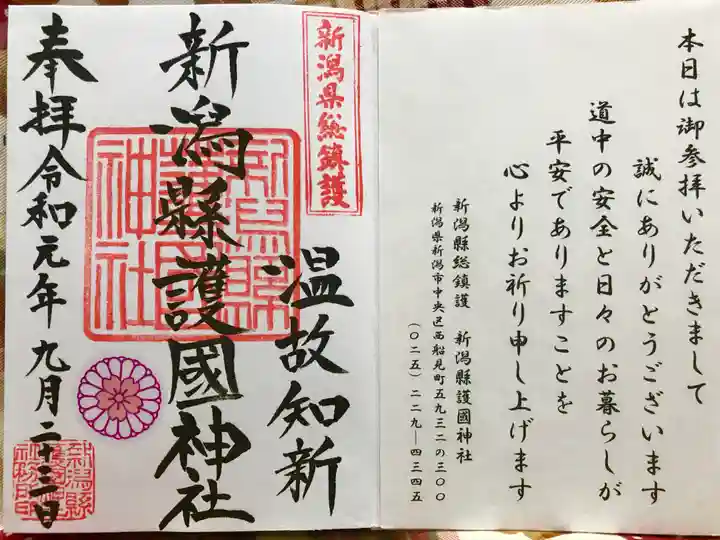 本日は御参拝いただきまして
誠にありがとうございます
道中の安全と日々のお暮らしが
平安でありますことを
心よりお祈り申し上げます
新潟縣総鎮護 新潟縣護國神社
新潟県新潟市中央区西船見町五九三二の三〇〇
(〇二五)二二九―四三四五
新潟県総鎮護
温故知新
新潟縣護國神社
新潟縣護國神社
奉拝令和元年九月二十三日